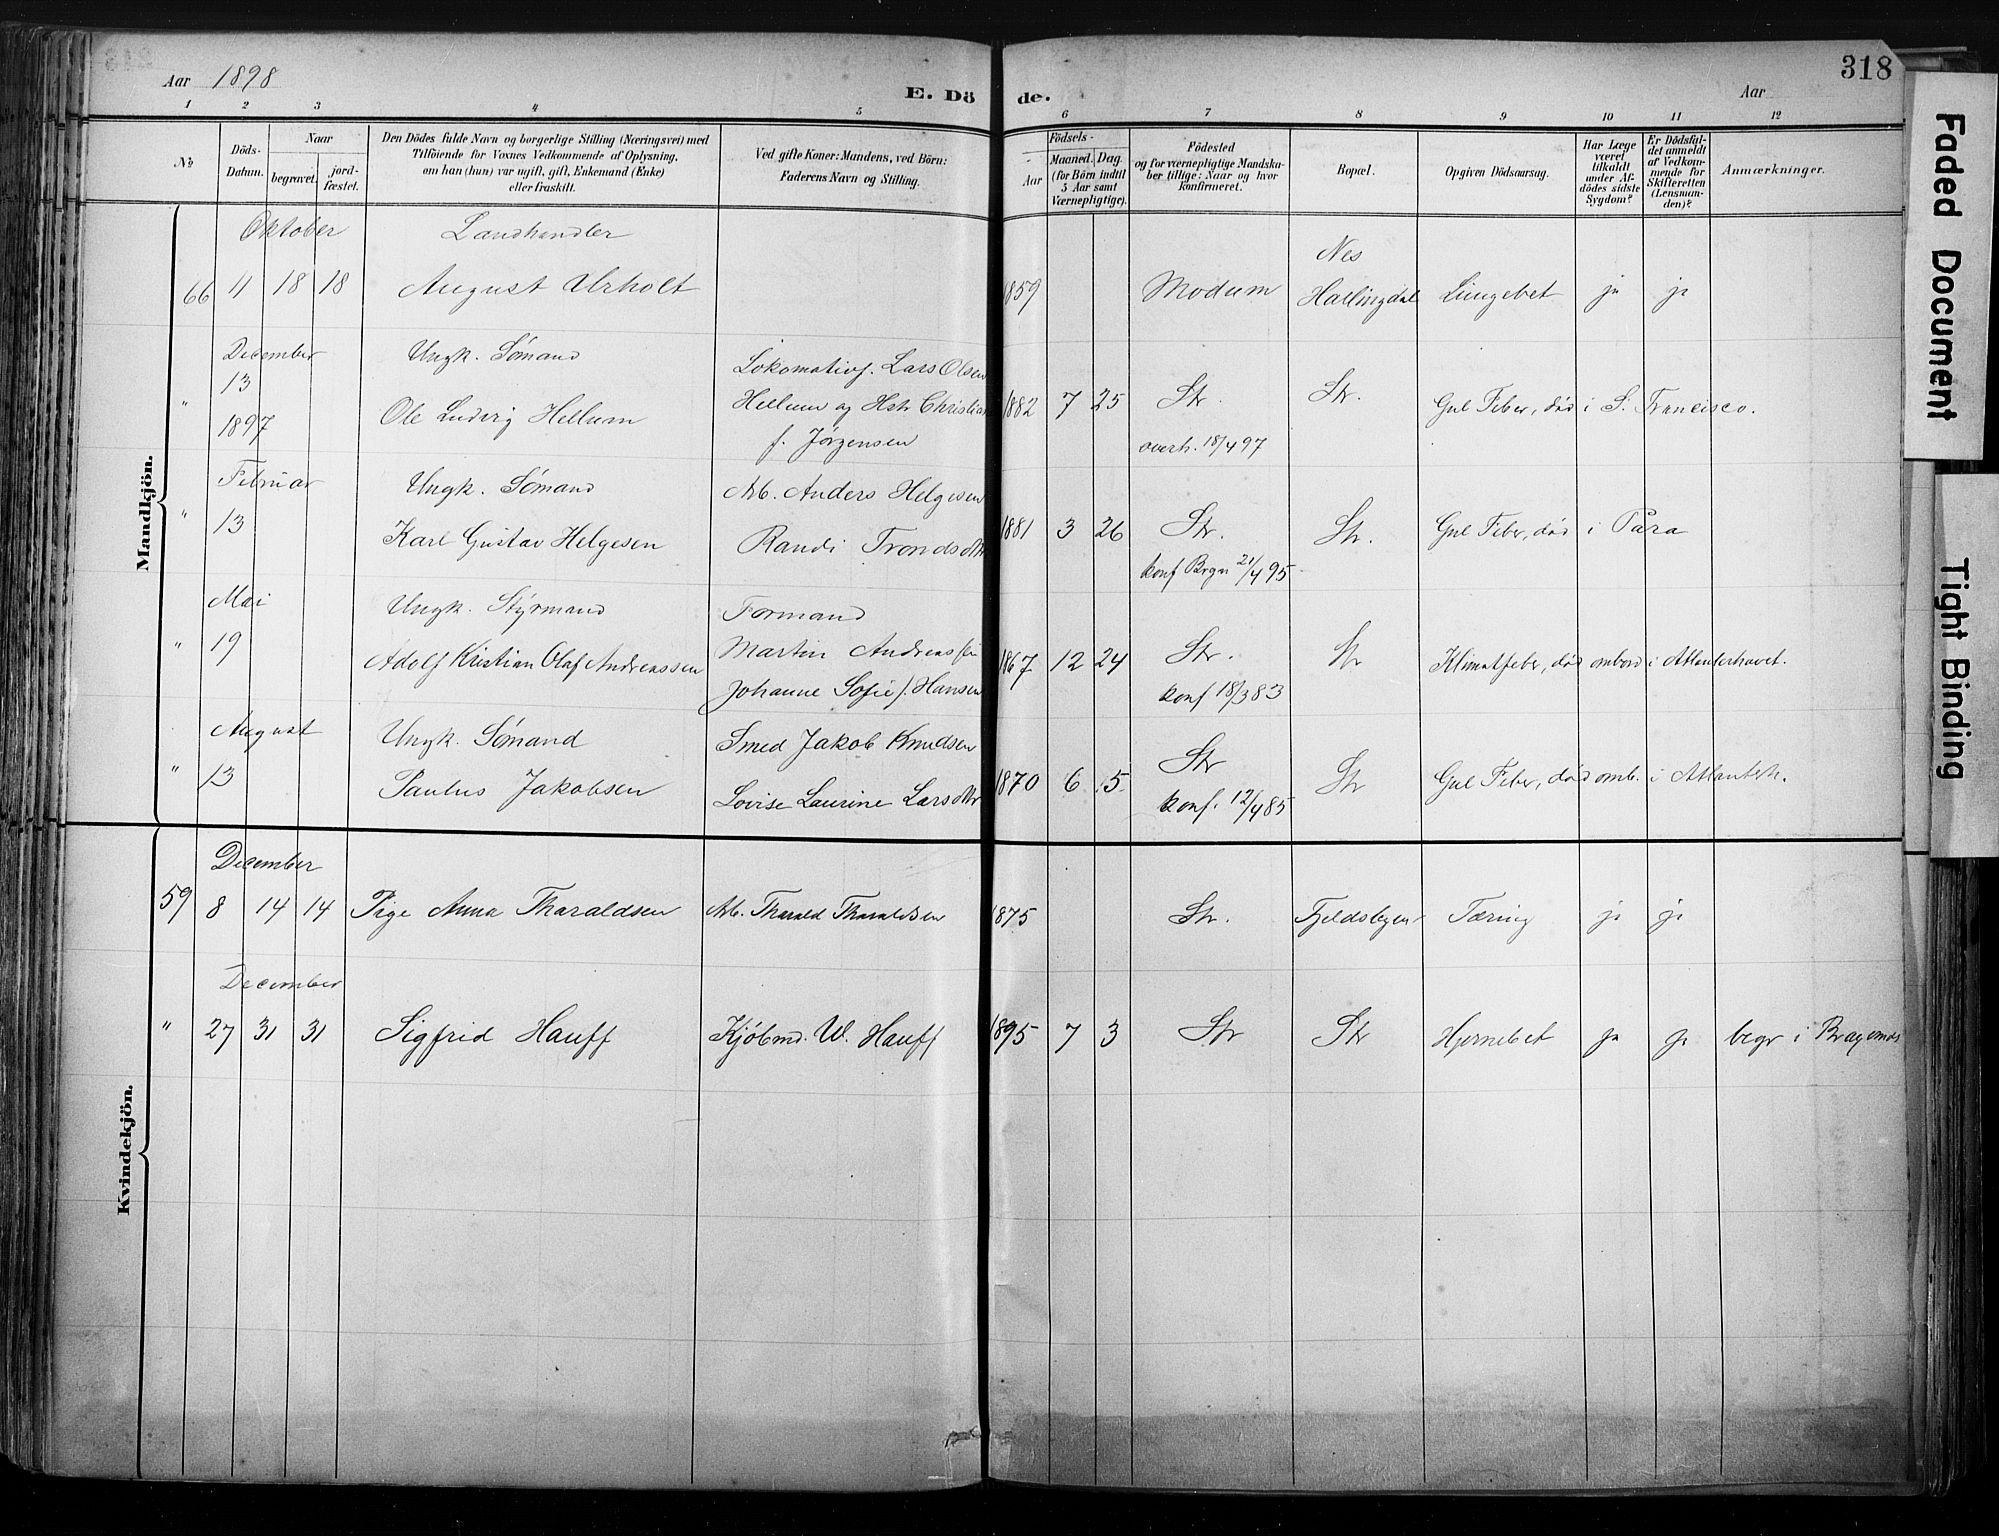 Aar 1898
E. Dö de.
Aar
318
1 2 3 4 5 6 7 8 9 10 11 12
No.
Döds-Datum.
Naar
begravet.
jord-fæstet.
Den Dödes fulde Navn og borgerlige Stilling (Næringsvei) med
Tilföiende for Voxnes Vedkommende af Oplysning,
om han (hun) var ugift, gift, Enkemand (Enke)
eller fraskilt.
Ved gifte Koner: Mandens, ved Börn:
Faderens Navn og Stilling.
Födsels-
Aar
Maaned. Dag.
(for Börn indtil
5 Aar samt
Værnepligtige).
Födested
og for værnepligtige Mandska-
ber tillige: Naar og hvor
konfirmeret.
Bopæl.
Opgiven Dödsaarsag.
Har Læge
været
tilkaldt
under Af-
dödes sidste
Sygdom?
Er Dödsfal-
det anmeldt
af Vedkom-
mende for
Skifteretten
(Lensman-
den)?
Anmærkninger.
Mandkjön.
Oktober Landhandler Nes
66 11 18 18 August Urholt 1859 Modum Hallingdal Lungebet ja ja
December Ungk. Sømand Lokomativf. Lars Olsen
13
" 1897 Ole Ludvig Hellum Hellum og Hstr Christian 1882 7 25 Str. Str. Gul Feber, død i S. Francisco.
f. Jørgensen overh. 18/4 97
Februar Ungk. Sømand Arb. Anders Helgesen
" 13 Karl Gustav Helgesen Randi Tronds Dtr 1881 3 26 Str. Str. Gul Feber, død i Para
konf Brgn 21/4 95
Mai Ungk. Styrmand Formand
" 19 Adolf Kristian Olaf Andreassen Martin Andreassen 1867 12 24 Str. Str Klimatfeber, død ombord i Atlanterhavet.
Johanne Sofie f. Hansen konf 18/3 83
August Ungk. Sømand Smed Jakob Knudsen
" 13 Paulus Jakobsen Lovise Laurine Lars Dtr 1870 6 5 Str Str Gul Feber, død omb. i Atlanterh.
konf. 12/4 85
Kvindekjön.
December
59 8 14 14 Pige Anna Tharaldsen Arb. Tharald Tharaldsen 1875 Str. Fjeldsbyen Tæring ja ja
December
" 27 31 31 Sigfrid Hauff Kjöbmd. W. Hauff 1895 7 3 Str Str Hjernebet ja ja begr i Bragernes
Faded Document
Tight Binding